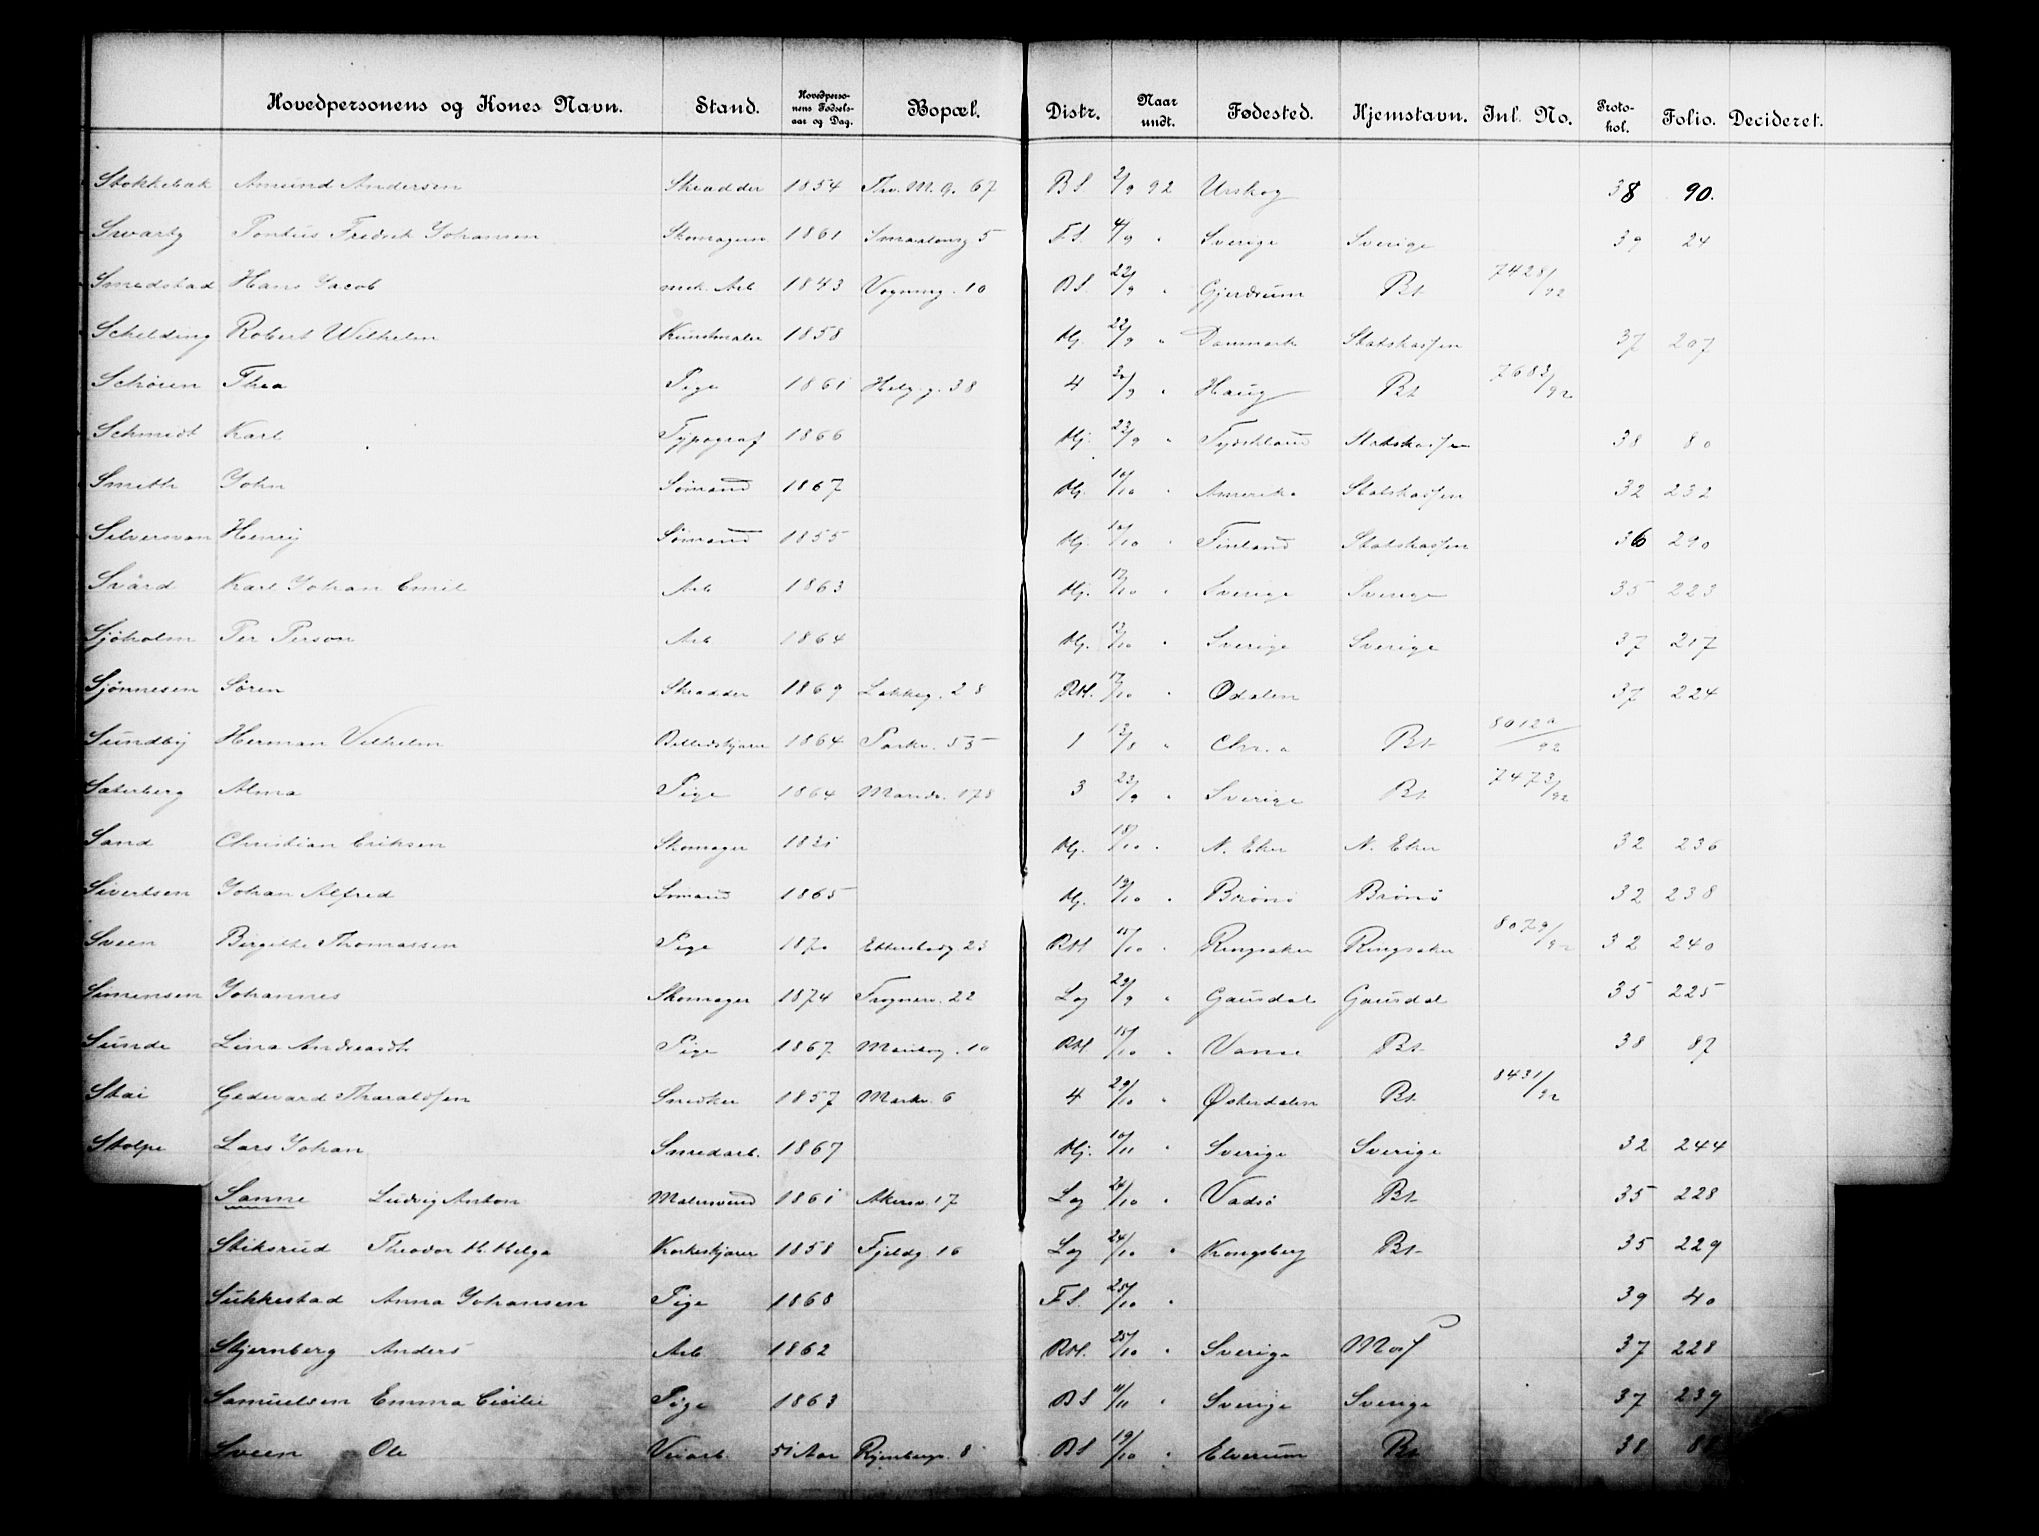 Hovedpersonens og Kones Navn. Stand. Hovedpersonens Fødselsaar og Dag. Bopæl. Distr. Naar undt. Fødested. Hjemstavn. Inl. No. Protokol. Folio. Decideret.
Stokkebak Amund Andersen Skrædder 1854 Thv. M. g. 67 BS 2/9 92 Urskog 38 90.
Svarty Pontus Fredrik Johansen Skomagersv. 1861 Smaalensg 5 F.S. 4/9 " Sverige Sverige 39 24
Smedstad Hans Jacob mek. Arb 1843 Vognmg. 10 BS. 22/9 " Gjerdrum Bt 7428/92
Schelding Robert Wilhelm Kunstmaler 1858 Hj. 22/9 " Danmark Statskassen 37 207
Schøien Thea Pige 1861 Helg. g. 38 4 30/9 " Haug Bt 7683/92
Schmidt Karl Typograf 1866 Hj. 23/9 " Tydskland Statskassen 38 80
Smith John Sømand 1867 Hj. 10/10 " Amerika Statskassen 32 232
Silversvan Henrij Sømand 1855 Hj. 10/10 " Finland Statskassen 36 290
Svård Karl Johan Emil Arb 1863 Hj. 12/10 " Sverige Sverige 35 223
Sjøholm Per Person Arb 1864 Hj. 13/10 " Sverige Sverige 37 217
Sjønnesen Søren Skrædder 1869 Lakkeg. 28 RH. 17/10 " Odalen 37 224
Sundby Herman Vilhelm Billedskjærer 1864 Parkv. 55 1 12/8 " Chr.a Bt 8012a/92
Säterberg Alma Pige 1864 Maridv. 178 3 23/9 " Sverige Bt 7473/92
Sand Christian Eriksen Skomager 1831 Hj. 18/10 " N. Eker N. Eker 32 236
Sivertsen Johan Alfred Sømand 1865 Hj. 19/10 " Brønø Brønø 32 238
Sveen Birgitte Thomassen Pige 1870 Etterstadg 23 RH 15/10 " Ringsaker Ringsaker 8079/92 32 240
Simensen Johannes Skomager 1874 Frognerv. 22 Lag 29/9 " Gausdal Gausdal 35 225
Sunde Lina Andreasdt Pige 1867 10 RH. 15/10 " Vanse Bt 38 87
Stai Gedevard Tharaldsen Snedker 1857 Markv. 6 4 29/10 " Østerdalen Bt 8431/92
Stolpe Lars Johan Smedarb. 1867 Hj. 10/11 " Sverige Sverige 32 244
Sanne Ludvig Anton Malersvend 1861 Akersv. 17 Lag 24/10 " Vadsø Bt 35 228
Stiksrud Theodor H. Helge Korkeskjærer 1858 Fjeldg. 16 Lag 24/10 " Kongsberg Bt 35 229
Sukkestad Anna Johansen Pige 1868 F.S. 25/10 " 39 40
Stjernberg Anders Arb 1862 RH. 25/10 " Sverige Moss 37 228
Samuelsen Emma Cicilie Pige 1863 BS 11/11 " Sverige Sverige 37 239
Sveen Ole Veiarb. 51 Aar 8 BS 19/10 " Elverum Bt 38 88